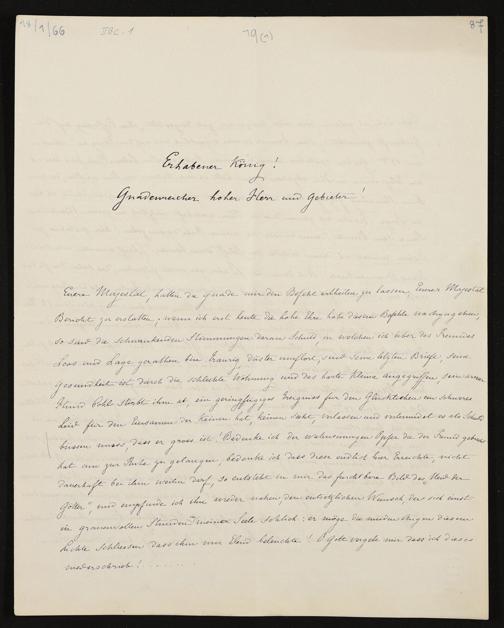 14/1/66
19(1)
87
Erhabener König!
Gnadenreicher hoher Herr und Gebieter!
Euere Majestät, hatten die Gnade mir den Befehl ertheilen zu lassen, Euerer Majestät
Bericht zu erstatten, wenn ich erst heute die hohe Ehre habe diesem Befehle nachzugehen,
so sind die schwankenden Stimmungen daran Schuld, in welchen ich über des Freundes
Loos und Lage gerathen bin. Traurig, düster umflort, sind seine letzten Briefe, seine
Gesundheit ist durch die schlechte Wohnung und das harte Klima angegriffen, sein armer
Hund Pohl stirbt ihm ab, ein geringfügiges Ereigniss für den Glücklichen ein schweres
Leid für den Einsamen der Keinen hat, Keinen sieht, verlassen und es als Schuld
büssen muss, dass er gross ist! Bedenke ich der wahnsinnigen Opfer die der Freund gebracht
hat um zur Ruhe zu gelangen, bedenke ich dass diese endlich Erreichte, nicht
dauerhaft bei ihm weilen darf, so entsteht in mir das furchtbare Bild des
Götter", und empfinde ich ihn wieder nahen, den entsetzlichen Wunsch, der sich einst
in grauenvollen Stunden meiner Seele schlich: er möge die müden Augen diesem
Lichte schliessen dass ihm nur Elend beleuchte! O Gott vergebe mir dass ich dieses
niederschrieb! . . . . . . .